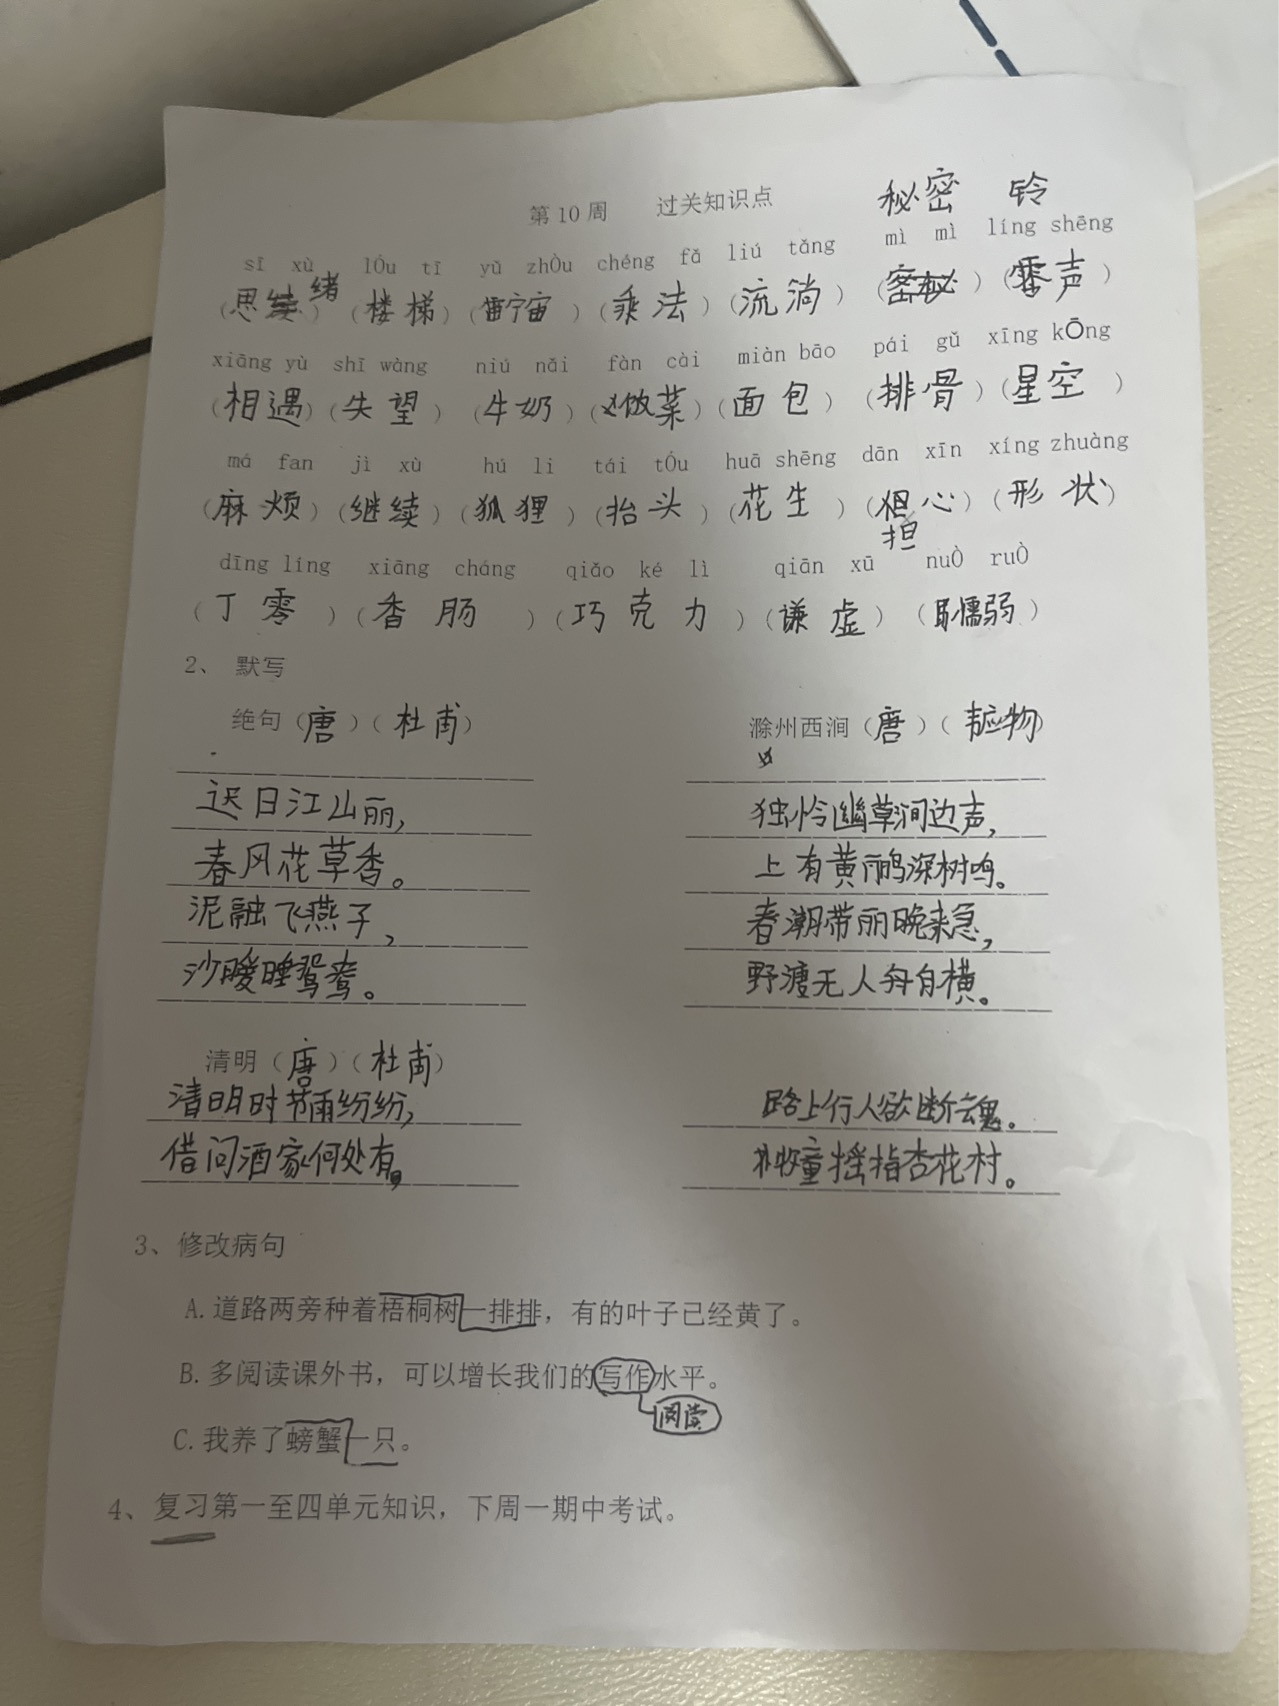 秘密 铃
第 10 周 过关知识点
sī xù lÓu tī yǔ zhÒu chéng fǎ liú tǎng mì mì líng shēng
(思绪)(楼梯)(宇宙)(乘法)(流淌)(密秘)(零声)
xiāng yù shī wàng niú nǎi fàn cài miàn bāo pái gǔ xīng kŌng
(相遇)(失望)(牛奶)(做菜)(面包)(排骨)(星空)
má fan jì xù hú li tái tÓu huā shēng dān xīn xíng zhuàng
(麻烦)(继续)(狐狸)(抬头)(花生)(担心)(形状)
担
dīng líng xiāng cháng qiǎo ké lì qiān xū nuÒ ruÒ
(丁零)(香肠)(巧克力)(谦虚)(弱)
2、 默写
绝句(唐)(杜甫) 滁州西涧(唐)(物)
迟日江山丽, 独怜幽草涧边声,
春风花草香。 上有黄鹂深树鸣。
泥融飞燕子, 春潮带丽晚来急,
沙暖睡鸳鸯。 野渡无人舟自横。
清明(唐)(杜甫)
清明时节雨纷纷, 路上行人欲断魂。
借问酒家何处有, 牧童摇指杏花村。
3、修改病句
A. 道路两旁种着梧桐树一排排，有的叶子已经黄了。
B. 多阅读课外书，可以增长我们的写作水平。
阅读
C. 我养了螃蟹一只。
4、复习第一至四单元知识，下周一期中考试。